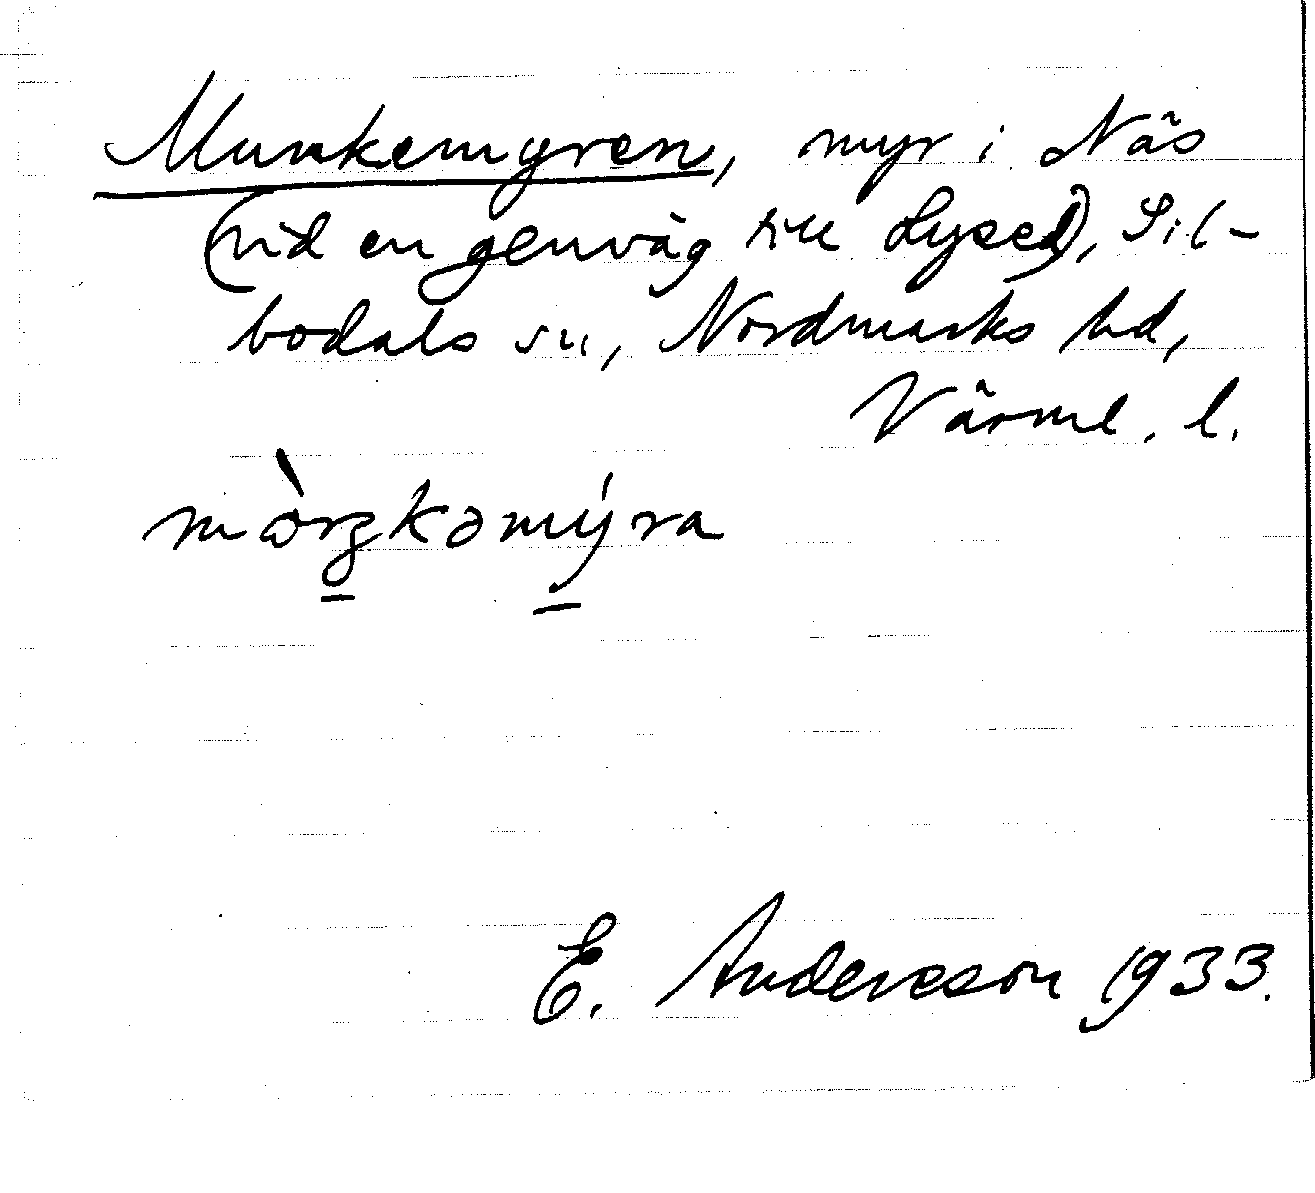 Munkemyren, myr i Näs
(vid en genväg till Lysed), Sil-
bodals sn, Nordmarks hd,
Värml. l.
E. Andersson 1933.